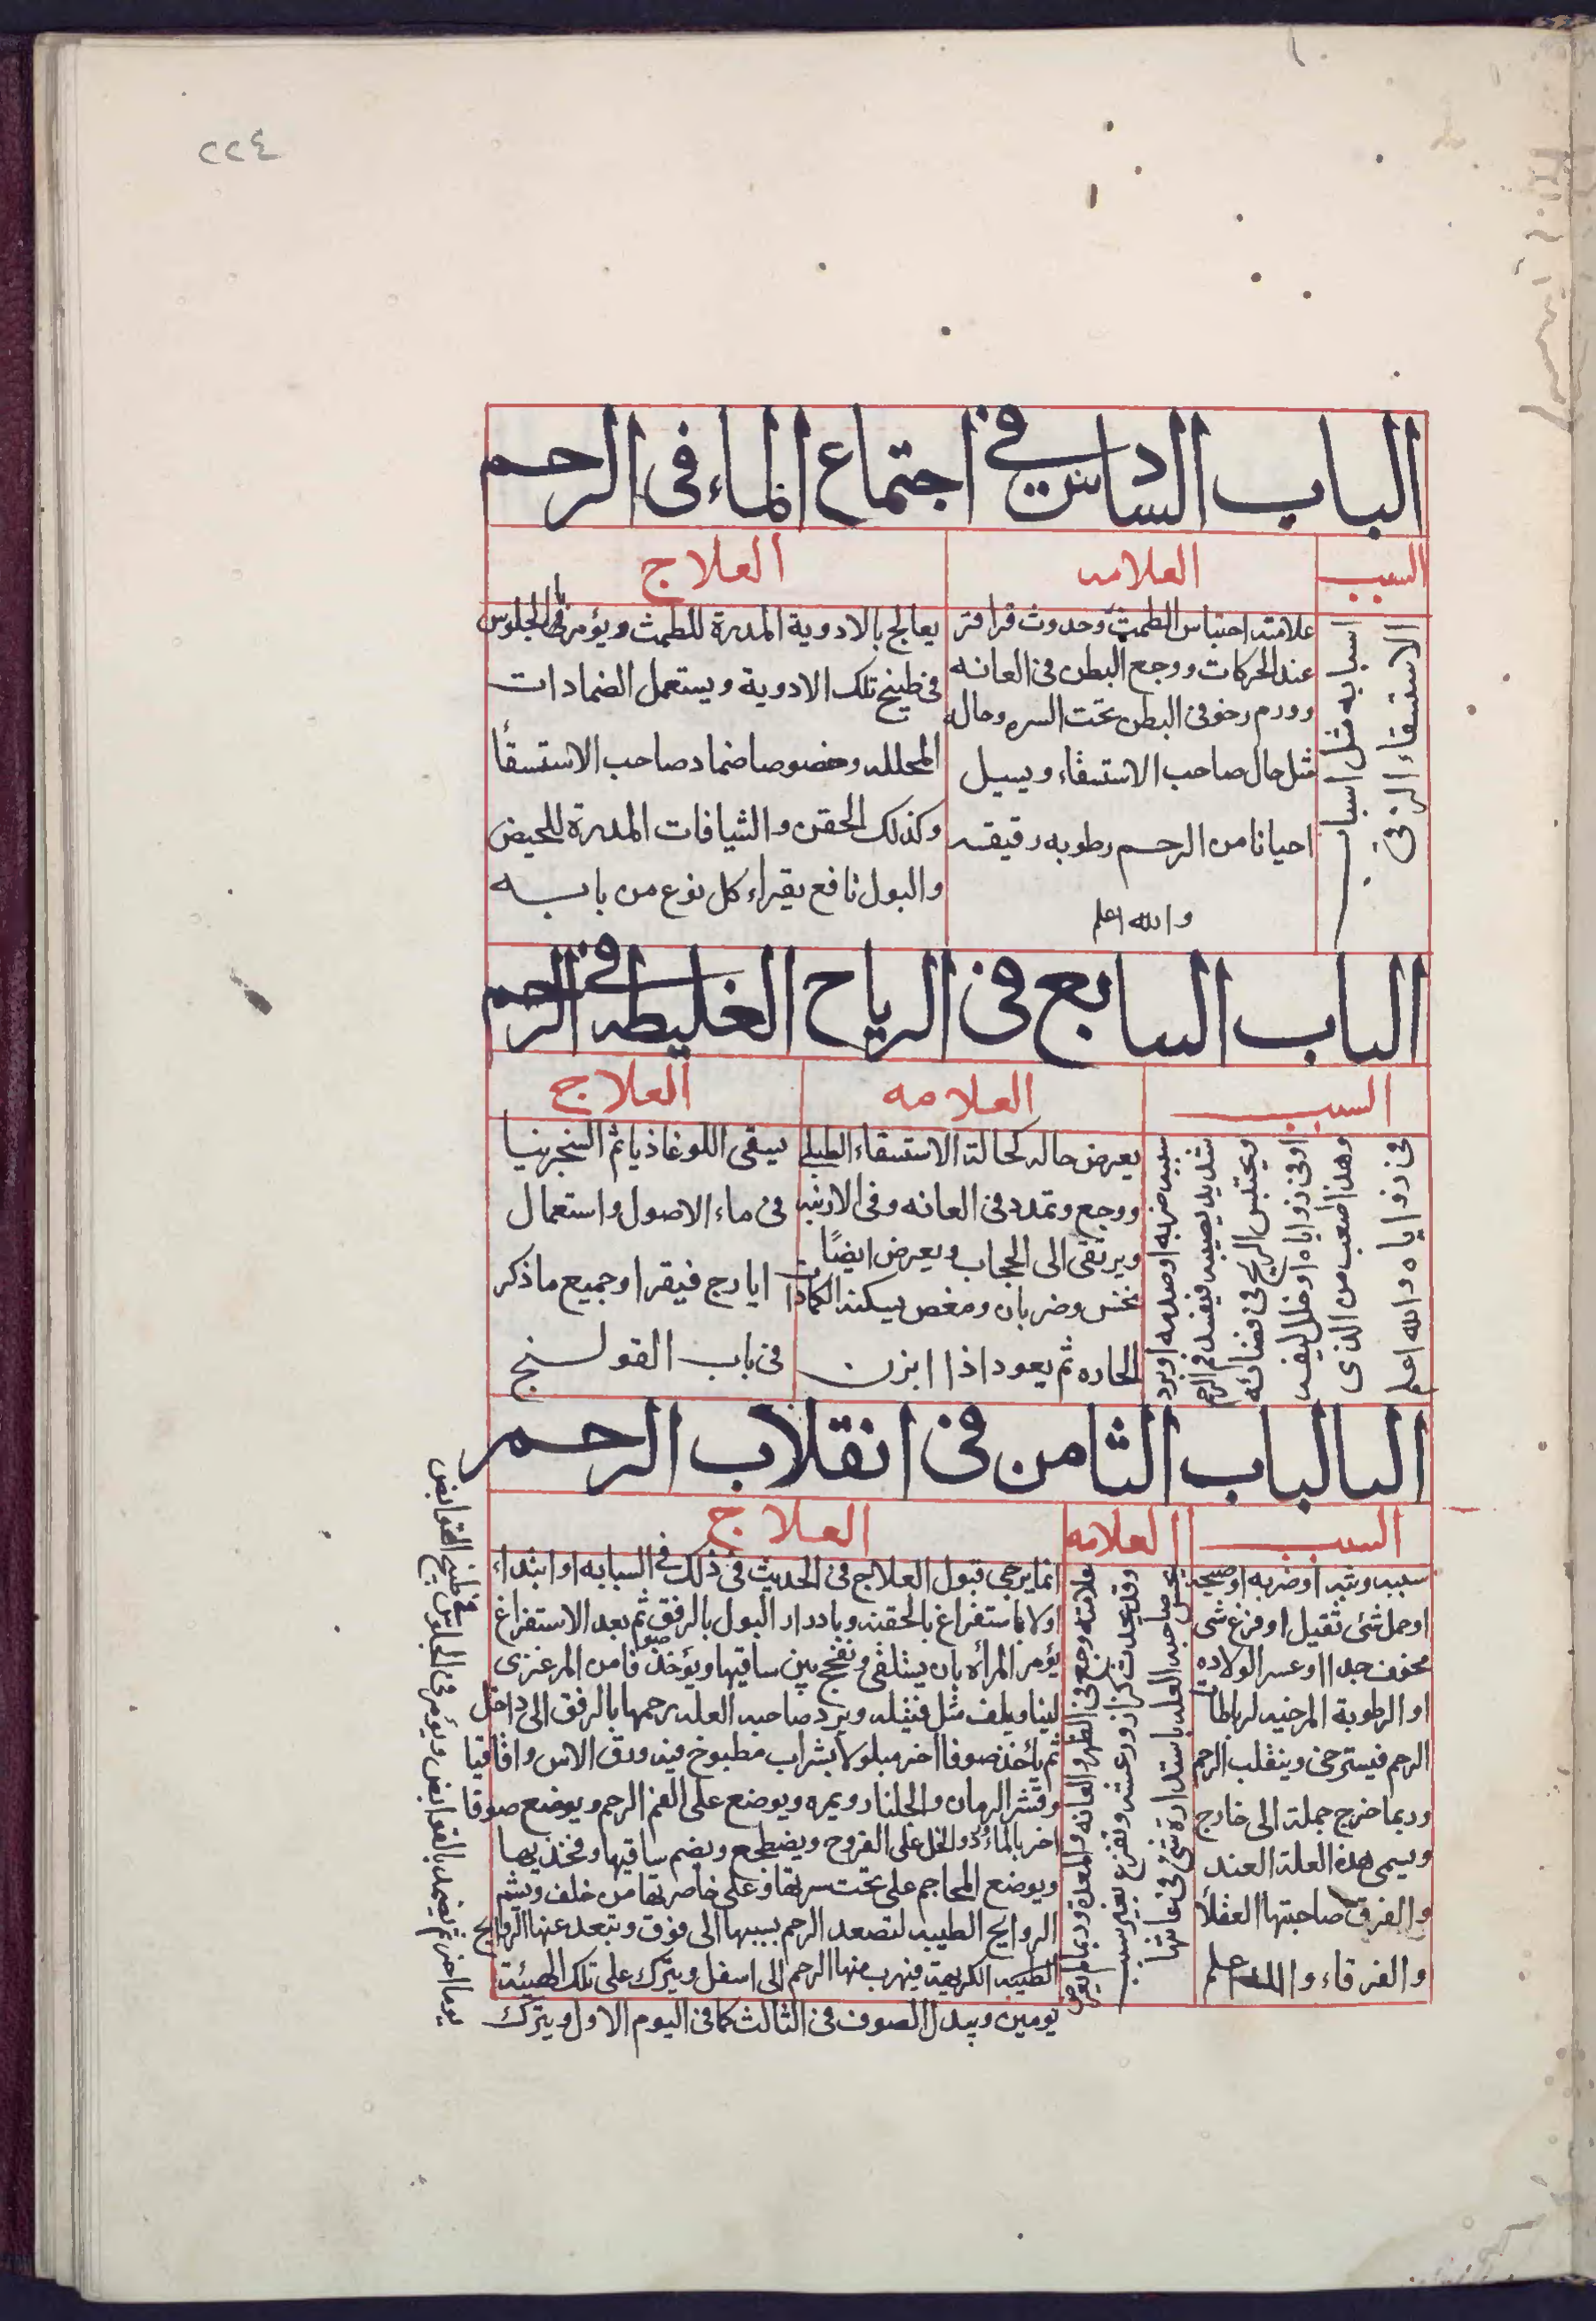 ٢٢٤
الباب السادس في اجتماع الماء فى الرحم
السبب
العلامه
العلاج
اسبابه مثل اسباب
الاستسقاء الزقى
علامته احتباس الطمث وحدوث قراقر
عند الحركات ووجع البطن فى العانه
وورم رخو فى البطن تحت السره وحاله
مثل حال صاحب الاستسقاء ويسيل
احيانا من الرحم رطوبه رقيقه
والله اعلم
يعالج بالادوية المدرة للطمث ويؤمر بالجلوس
فى طبيخ تلك الادوية ويستعمل الضمادات
المحلله وخصوصا ضماد صاحب الاستسقأ
وكذلك الحقن والشيافات المدرة للحيض
والبول نافع يقراء كل نوع من بابه
الباب السابع فى الرياح الغليطه فى الرحم
السبب
العلامه
العلاج
سببه ضربه او صدمه او برد
شديد يصيبه فيفسد فم الرحم
ويحتبس الريح فى فضائه
او فى زواياه او خلل ليفه
وهذا اصعب من الذى
فى زواياه والله اعلم
يعرض حاله كحالة الاستسقاء الطبلى
ووجع وتمدد فى العانه وفى الاربيه
ويرتقى الى الحجاب ويعرض ايضًا
نخس وضربان ومغص يسكنه الكمادات
الحاره ثم يعود اذا ابزن
يسقى اللوغاذيا ثم السنجرينيا
فى ماء الاصول واستعمال
ايارج فيقرا وجميع ما ذكر
فى باب القولنج
البالباب الثامن فى انقلاب الرحم
السبب
العلامه
العلاج
سببه وثبه او ضربه او صيحه
او حمل شئ ثقيل او فزع شى
مخوف جدا او عسر الولاده
او الرطوبة المرخيه لرباطات
الرحم فيسترخى وينقلب الرحم
وربما خرج جملة الى خارج
ويسمى هذه العلة العند
والفرق صاحبتها العفلأ
والفرقاء والله اعلم
علامته وجع فى الظهر والعانه والمعدة وربما لم يعرض
وقد يحدث كزاز ورعشه وتفزع بغير سبب
يحس صاحبه العله باستدارة شئ فى عانتها
انما يرجى قبول العلاج فى الحديث فى ذلك فى السبابه او ابتداء
اولا باستفراغ بالحقنه وبادرار البول بالرفق ثم بعد الاستفراغ
يؤمر المرأه بان يستلقى وتفجج بين ساقيها ويؤخذ صوفا من المرعزى
لينا ويلف مثل فتيله ويرد صاحبه العله رحمها بالرفق الى داخل
ثم يأخذ صوفا اخر مبلولا بشراب مطبوخ فيه ورق الاس واقاقيا
وقشر الرمان والجلنار ويمره ويوضع على الفم الرحم ويوضع صوفا
اخر بالماء والخل على الفروح ويضطجع ويضم ساقيها وفخذيها
ويوضع المحاجم على تحت سرتها وعلى خاصرتها من خلف ويشم
الروايح الطيبه لتصعد الرحم بسببها الى فوق وتبعد عنها الروايح
الطيبه الكريهة فيهرب منها الرحم الى اسفل ويترك على تلك الهيئة
يومين ويبدل الصوف فى الثالث كما فى اليوم الاول ويترك
يوما اخر ثم يضمد بالقوابض ويؤمر فى الجلوس فى طبيخ القوابض